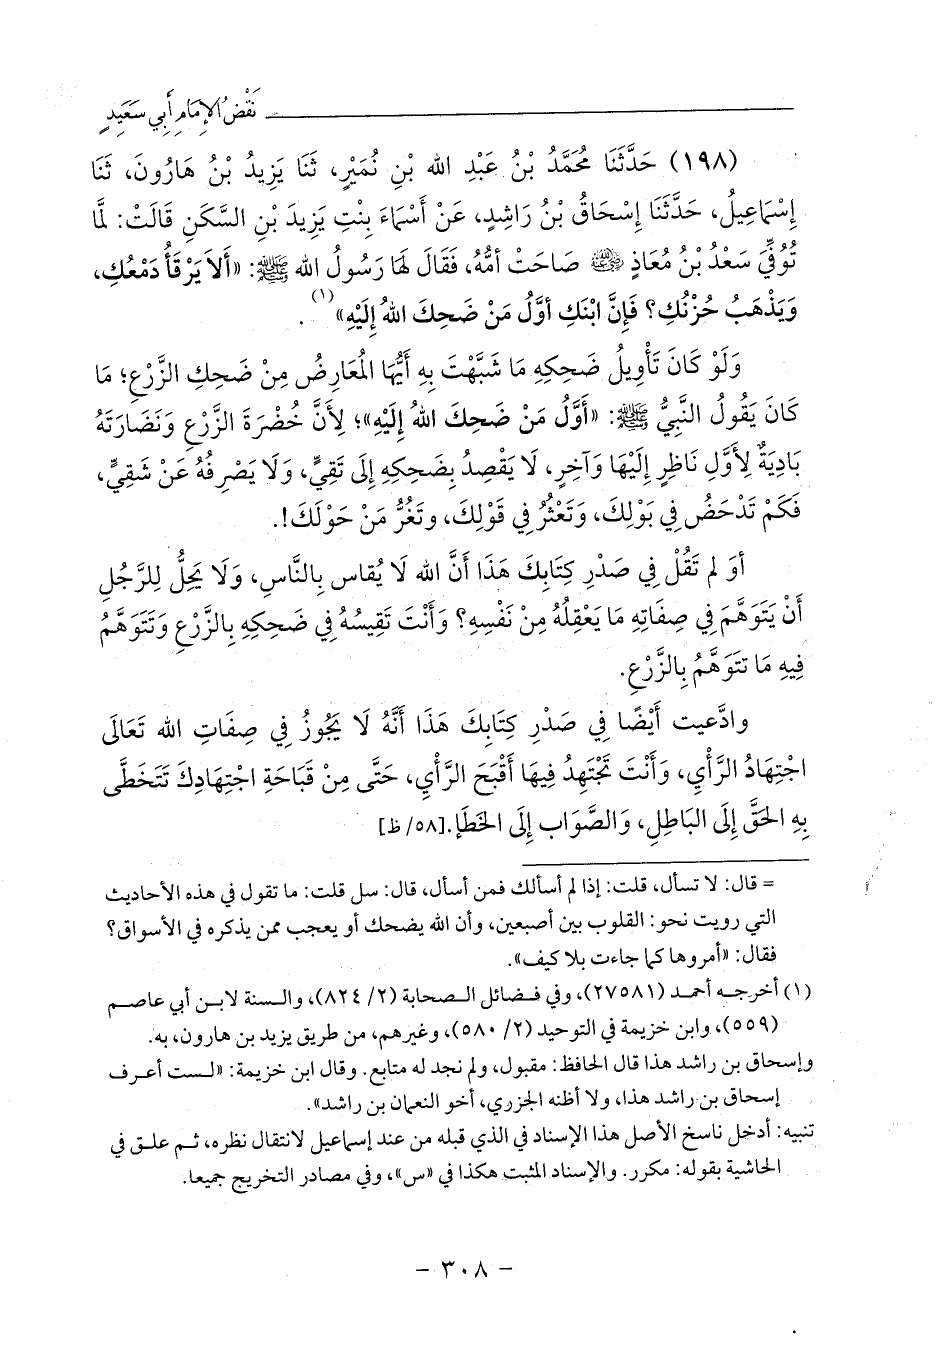 نَقْضُ الإِمَامِ أَبِي سَعِيدٍ
(١٩٨) حَدَّثَنَا مُحَمَّدُ بْنُ عَبْدِ الله بْنِ نُمَيْرٍ، ثَنَا يَزِيدُ بْنُ هَارُونَ، ثَنَا
إِسْمَاعِيلُ، حَدَّثَنَا إِسْحَاقُ بْنُ رَاشِدٍ، عَنْ أَسْمَاءَ بِنْتِ يَزِيدَ بْنِ السَّكَنِ قَالَتْ: لَمَّا
تُوُفِّيَ سَعْدُ بْنُ مُعَاذٍ رضي الله عنه صَاحَتْ أمُّهُ، فَقَالَ لَهَا رَسُولُ الله ﷺ: «أَلَا يَرْقَأُ دَمْعُكِ،
وَيَذْهَبُ حُزْنُكِ؟ فَإِنَّ ابْنَكِ أوَّلُ مَنْ ضَحِكَ اللهُ إِلَيْهِ»(١).
وَلَوْ كَانَ تَأْوِيلُ ضَحِكِهِ مَا شَبَّهْتَ بِهِ أَيُّهَا الْمُعَارِضُ مِنْ ضَحِكِ الزَّرْعِ؛ مَا
كَانَ يَقُولُ النَّبِيُّ ﷺ: «أَوَّلُ مَنْ ضَحِكَ اللهُ إِلَيْهِ»؛ لِأَنَّ خُضْرَةَ الزَّرْعِ وَنَضَارَتَهُ
بَادِيَةٌ لِأَوَّلِ نَاظِرٍ إِلَيْهَا وَآخِرٍ، لَا يَقْصِدُ بِضَحِكِهِ إِلَى تَقِيٍّ، وَلَا يَصْرِفُهُ عَنْ شَقِيٍّ،
فَكَمْ تَدْحَضُ فِي بَوْلِكَ، وَتَعْثُرُ فِي قَوْلِكَ، وتَغُرُّ مَنْ حَوْلَكَ!.
أوَ لم تَقُلْ فِي صَدْرِ كِتَابِكَ هَذَا أَنَّ الله لَا يُقاس بِالنَّاسِ، وَلَا يَحِلُّ لِلرَّجُلِ
أَنْ يَتَوَهَّمَ فِي صِفَاتِهِ مَا يَعْقِلُهُ مِنْ نَفْسِهِ؟ وَأَنْتَ تَقِيسُهُ فِي ضَحِكِهِ بِالزَّرْعِ وَتَتَوَهَّمُ
فِيهِ مَا تتَوَهَّمُ بِالزَّرْعِ.
وادَّعيت أَيْضًا فِي صَدْرِ كِتَابِكَ هَذَا أَنَّهُ لَا يَجُوزُ فِي صِفَاتِ الله تَعَالَى
اجْتِهَادُ الرَّأْيِ، وَأَنْتَ تَجْتَهِدُ فِيهَا أَقْبَحَ الرَّأْيِ، حَتَّى مِنْ قَبَاحَةِ اجْتِهَادِكَ تَتَخَطَّى
بِهِ الحَقَّ إِلَى البَاطِلِ، وَالصَّوَاب إِلَى الخَطَإ.[٥٨/ ظ]
= قال: لا تسأل، قلت: إذا لم أسألك فمن أسأل، قال: سل قلت: ما تقول في هذه الأحاديث
التي رويت نحو: القلوب بين أصبعين، وأن الله يضحك أو يعجب ممن يذكره في الأسواق؟
فقال: «أمروها كما جاءت بلا كيف».
(١) أخرجه أحمد (٢٧٥٨١)، وفي فضائل الصحابة (٢/ ٨٢٤)، والسنة لابن أبي عاصم
(٥٥٩)، وابن خزيمة في التوحيد (٢/ ٥٨٠)، وغيرهم، من طريق يزيد بن هارون، به.
وإسحاق بن راشد هذا قال الحافظ: مقبول، ولم نجد له متابع. وقال ابن خزيمة: «لست أعرف
إسحاق بن راشد هذا، ولا أظنه الجزري، أخو النعمان بن راشد».
تنبيه: أدخل ناسخ الأصل هذا الإسناد في الذي قبله من عند إسماعيل لانتقال نظره، ثم علق في
الحاشية بقوله: مكرر. والإسناد المثبت هكذا في «س»، وفي مصادر التخريج جميعا.
- ٣٠٨ -